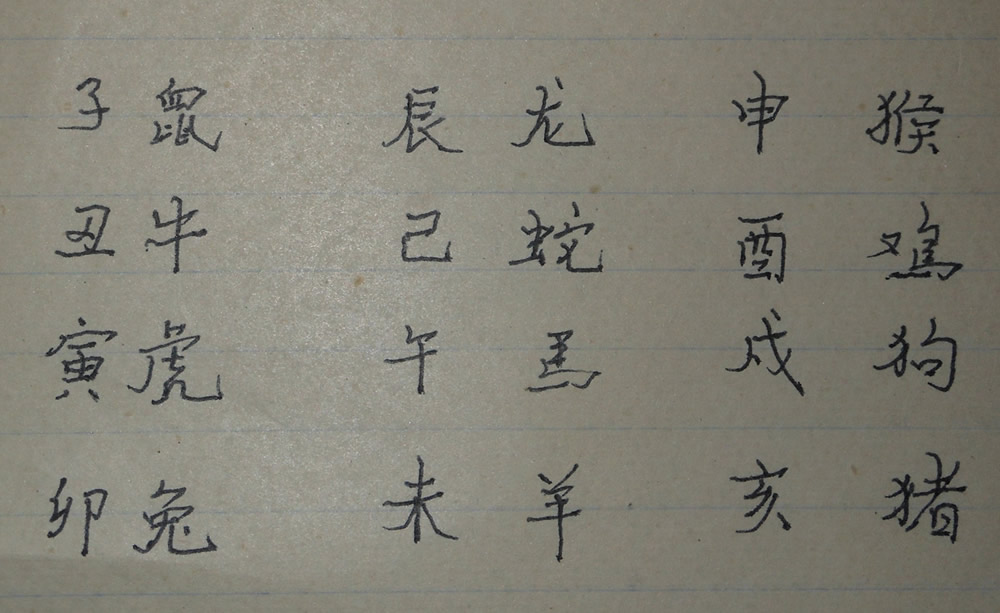 子鼠 辰龙 申猴
丑牛 己蛇 酉鸡
寅虎 午馬 戍狗
卯兔 未羊 亥猪